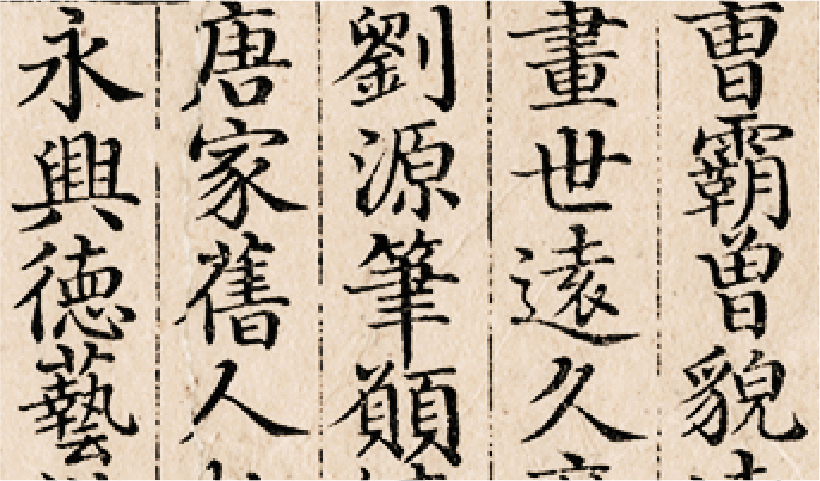 曺霸曾貌
畫世遠久
劉源筆
唐家舊人
永興徳藝